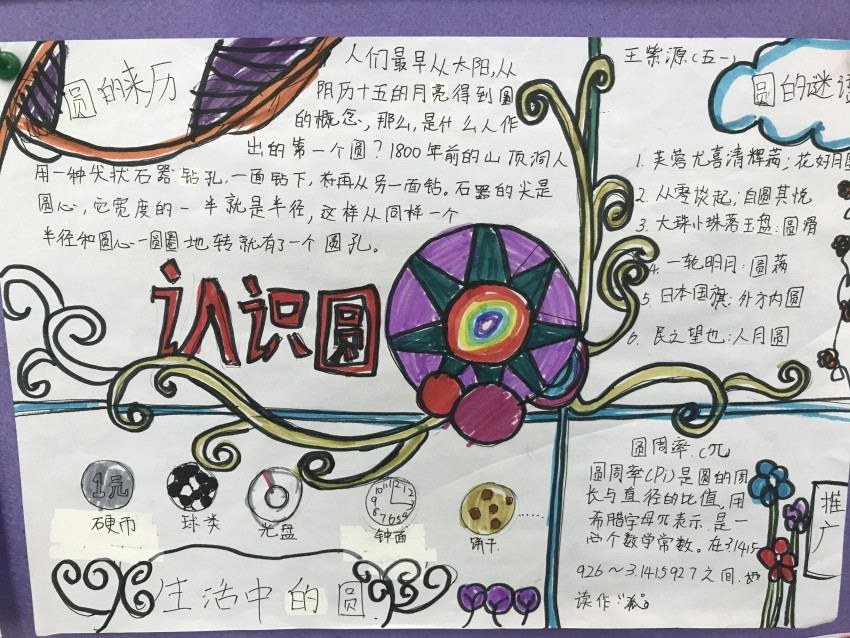 圆的来历
人们最早从太阳,从
阴历十五的月亮得到圆
的概念,那么,是什么人作
出的第一个圆?1800年前的山顶洞人
用一种尖状石器钻孔,一面钻下,将再从另一面钻。石器的尖是
圆心,它宽度的一半就是半径,这样从同样一个
半径和圆心一圆圈地转就有了一个圆孔。
认识圆
王紫源(五一)
圆的谜语
1. 芙蓉尤喜清辉满;花好月圆
2. 从零谈起;自圆其悦
3. 大珠小珠落玉盘:圆滑
4. 一轮明月:圆满
5 日本国旗:外方内圆
6. 民之望也:人月圆
1元
硬币
球类
光盘
钟面
饼干
......
生活中的圆
圆周率.(π
圆周率(Pi)是圆的周
长与直径的比值,用
希腊字母π表示.是一
个数学常数。在3.1415
926~3.1415927之间.
读作
推
广